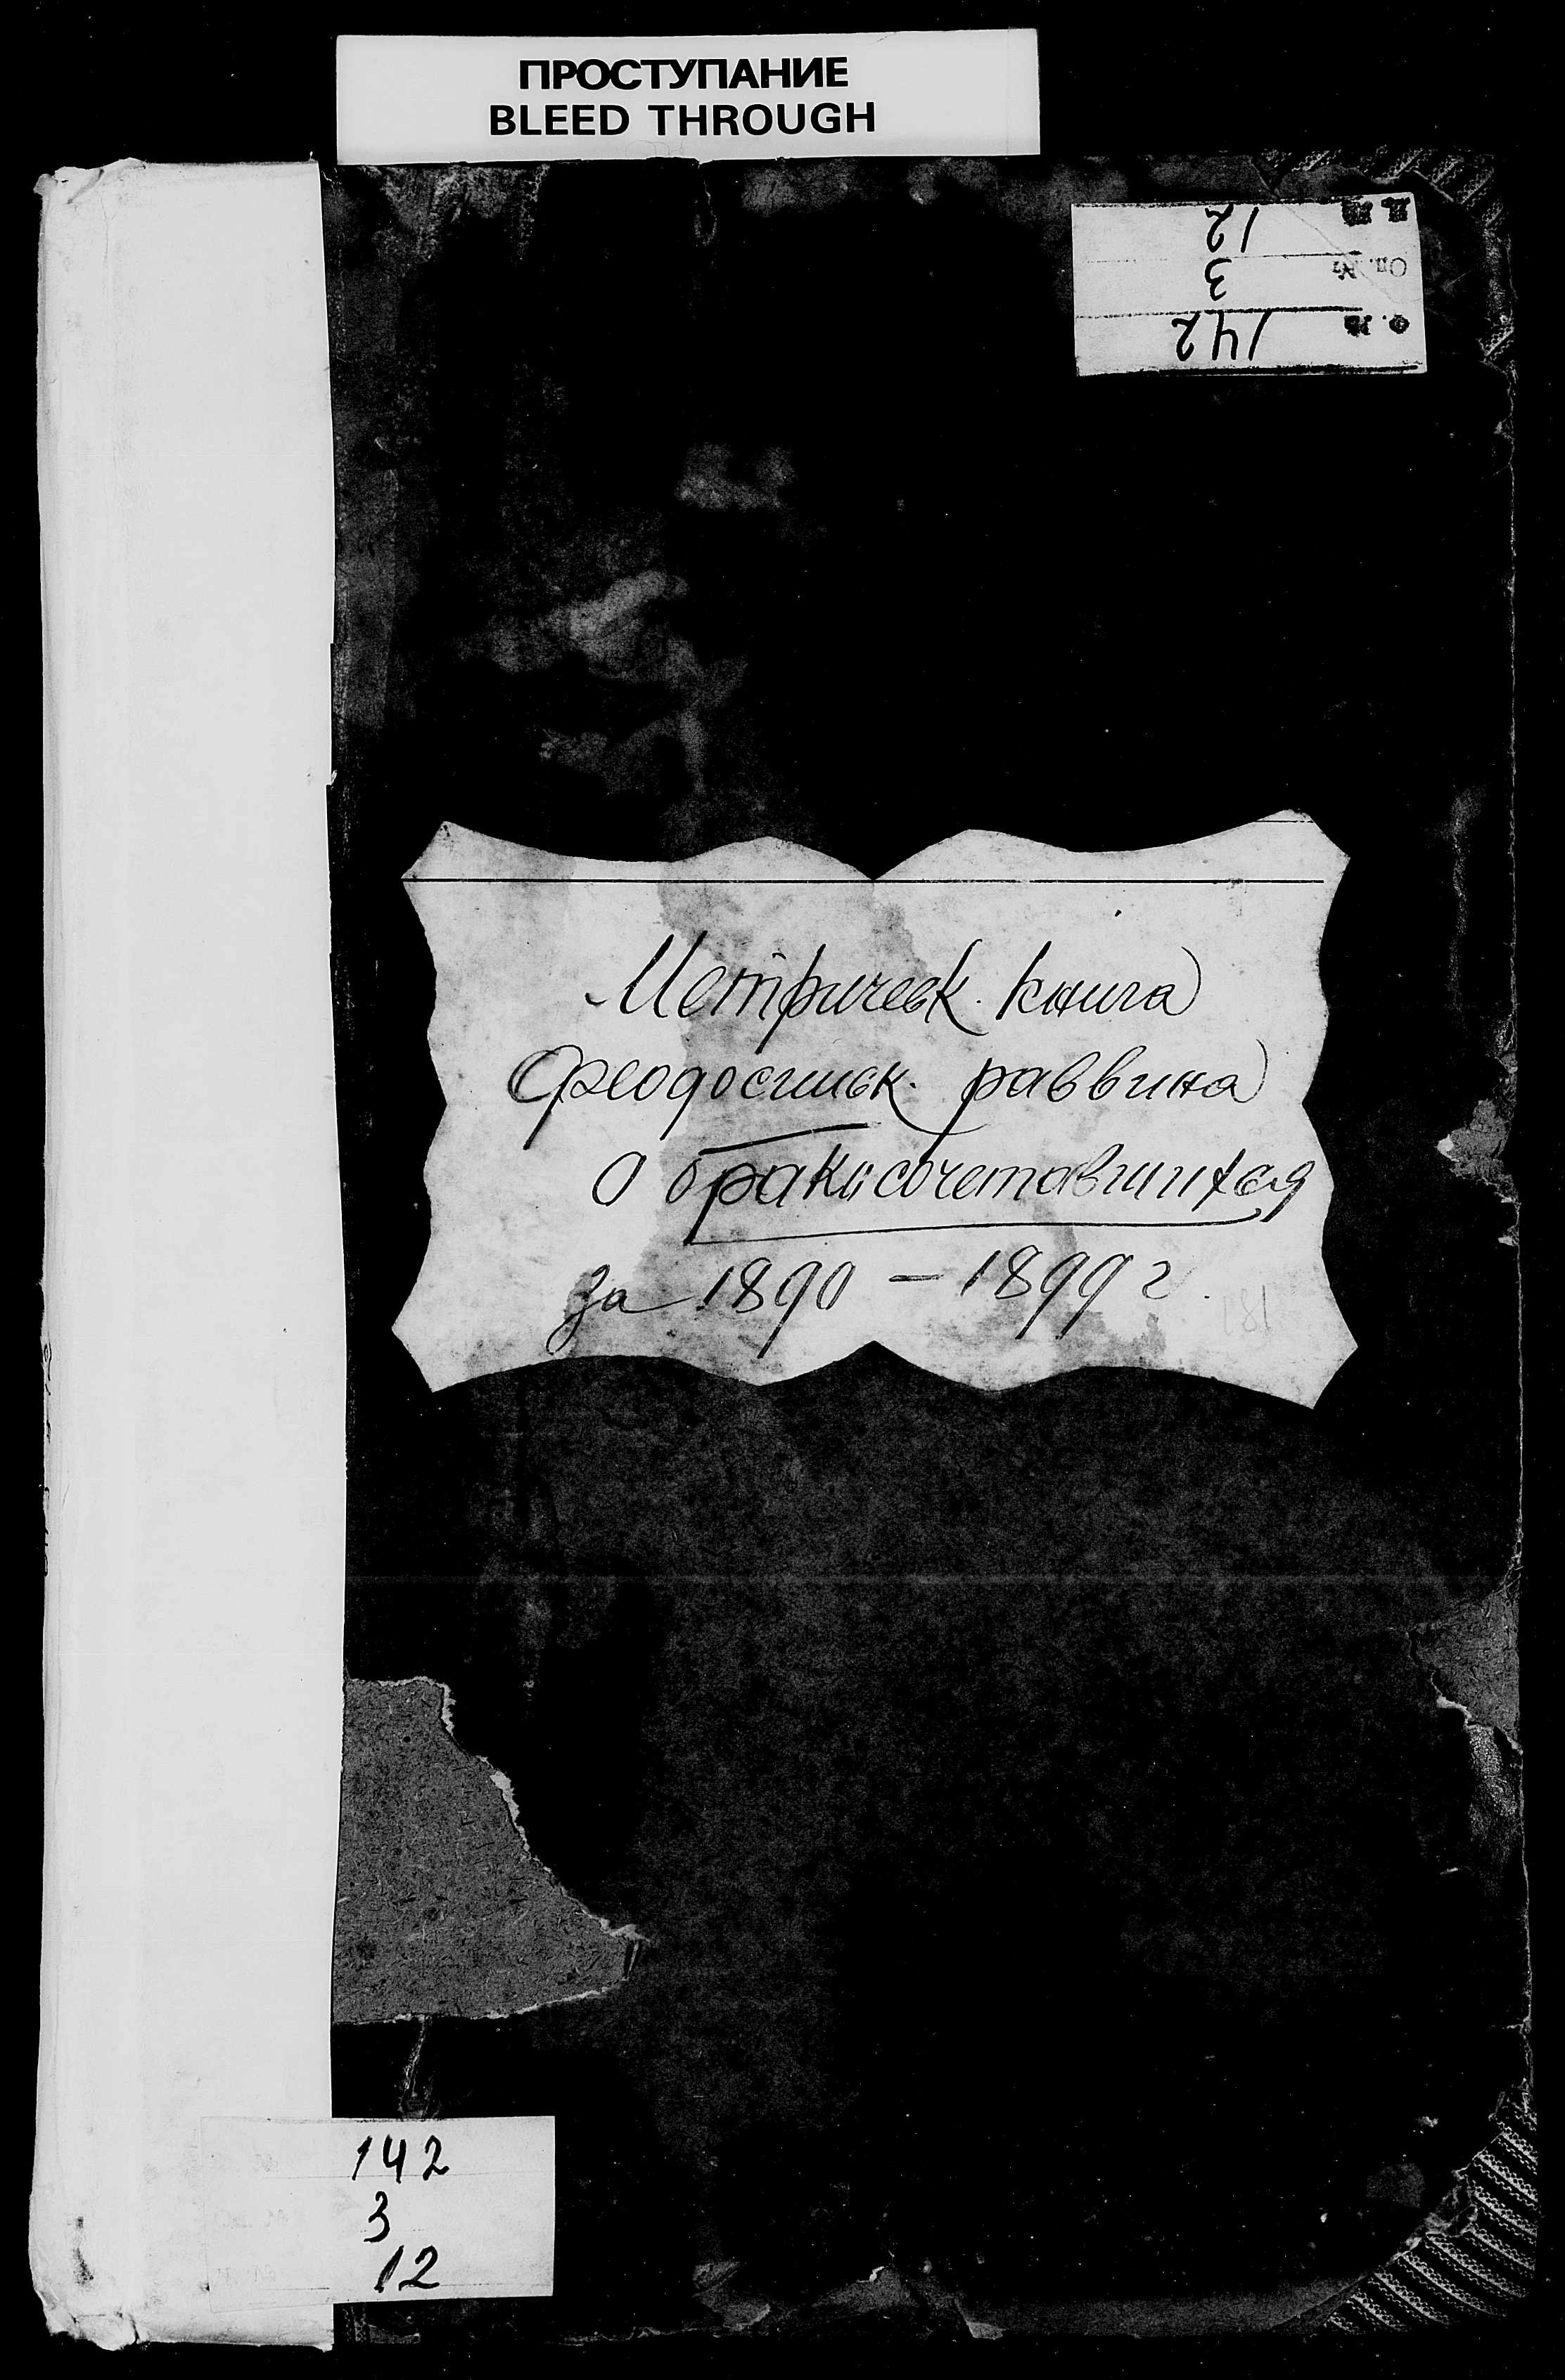 ПРОСТУПАНИЕ
BLEED THROUGH
Ф. № 142
Оп. № 3
Д. № 12
Метрическ. книга
Феодосийск. раввина
о бракосочетавшихся
за 1890 – 1899 г.
181
142
3
12